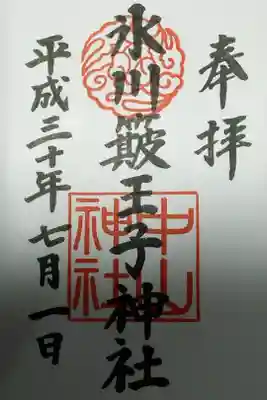 奉拝
氷川簸王子神社
平成三十年七月一日
中山
神社